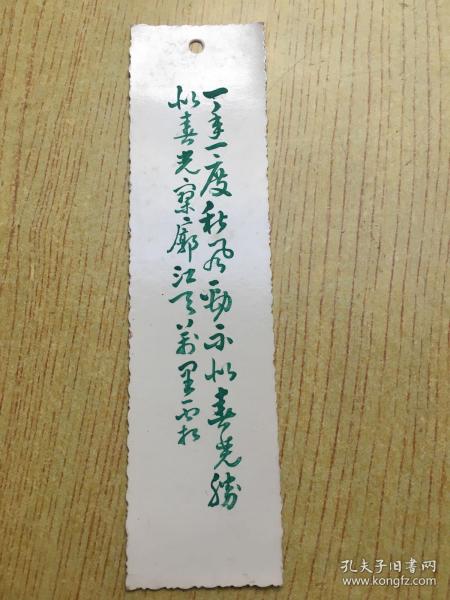 一年一度秋風勁不似春光勝
似春光寥廓江天萬里霜
孔夫子旧书网
www.kongfz.com